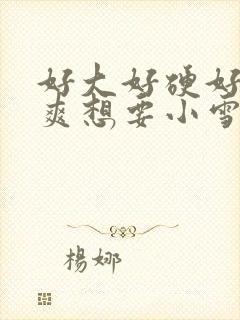 好大好硬好
爽想要小雪
楊娜